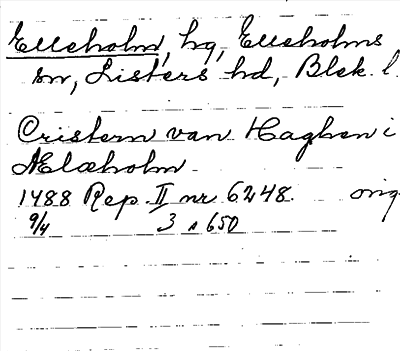 Elleholm, hg, Elleholms
sn, Listers hd, Blek. l.
Cristern van Haghen i
Ælæholm
1488 Rep. II nr 6248. orig
9/4 3 s 650